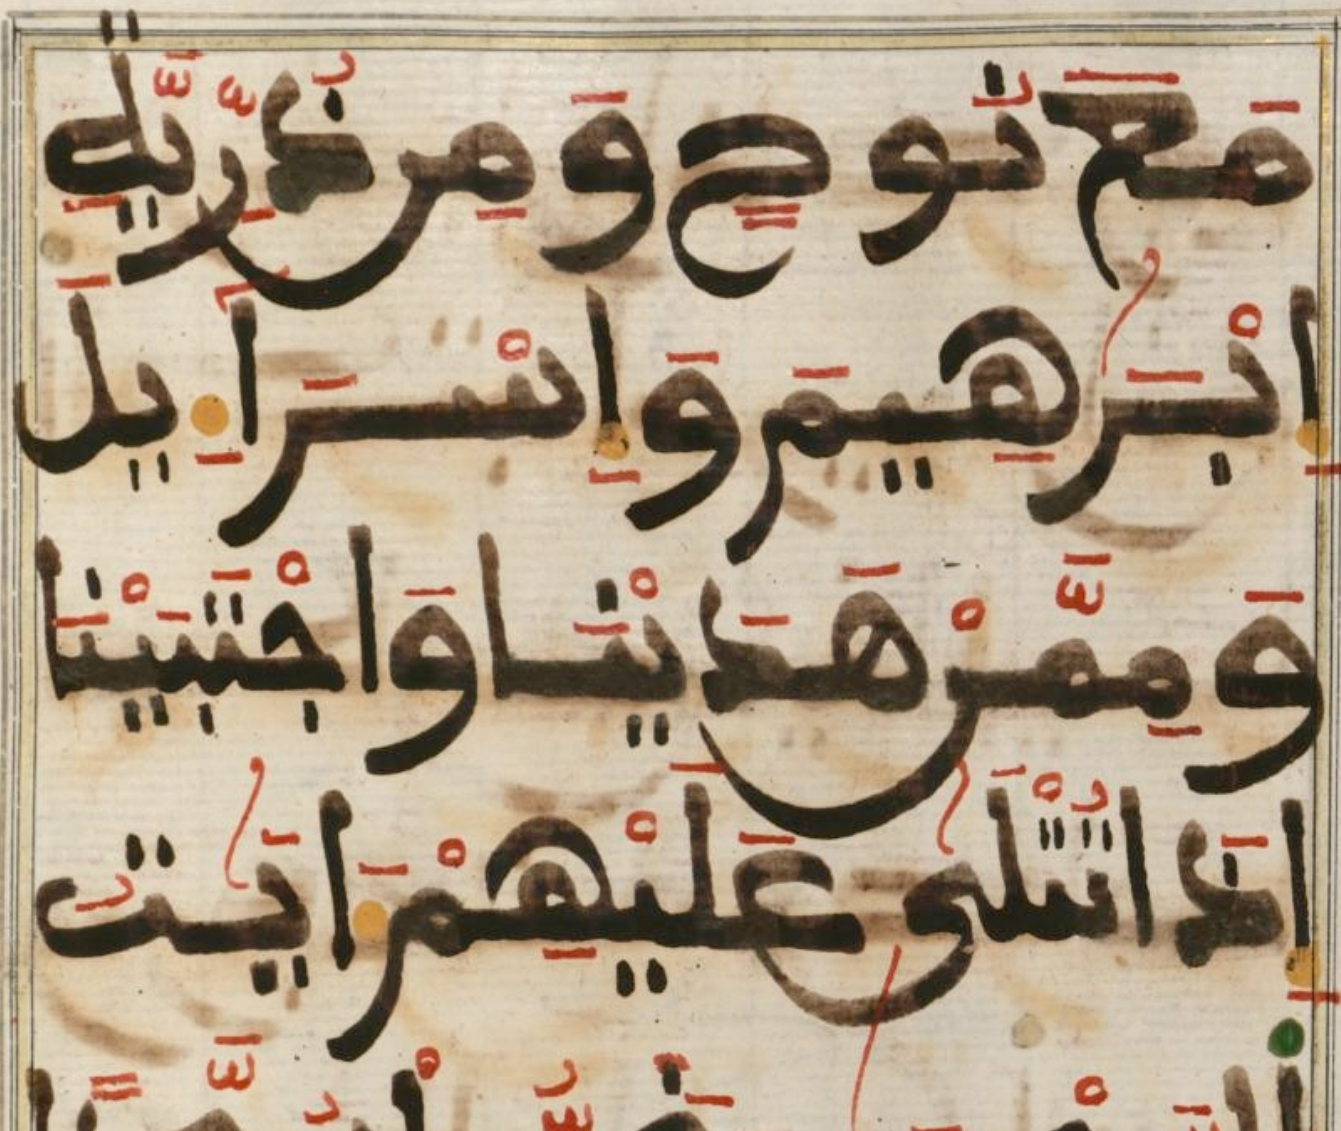 مَعَ نُوحٍ وَمِن ذُرِّيَّةِ
إِبْرَٰهِيمَ وَإِسْرَآءِيلَ
وَمِمَّنْ هَدَيْنَا وَاجْتَبَيْنَا
إِذَا تُتْلَىٰ عَلَيْهِمْ ءَايَٰتُ